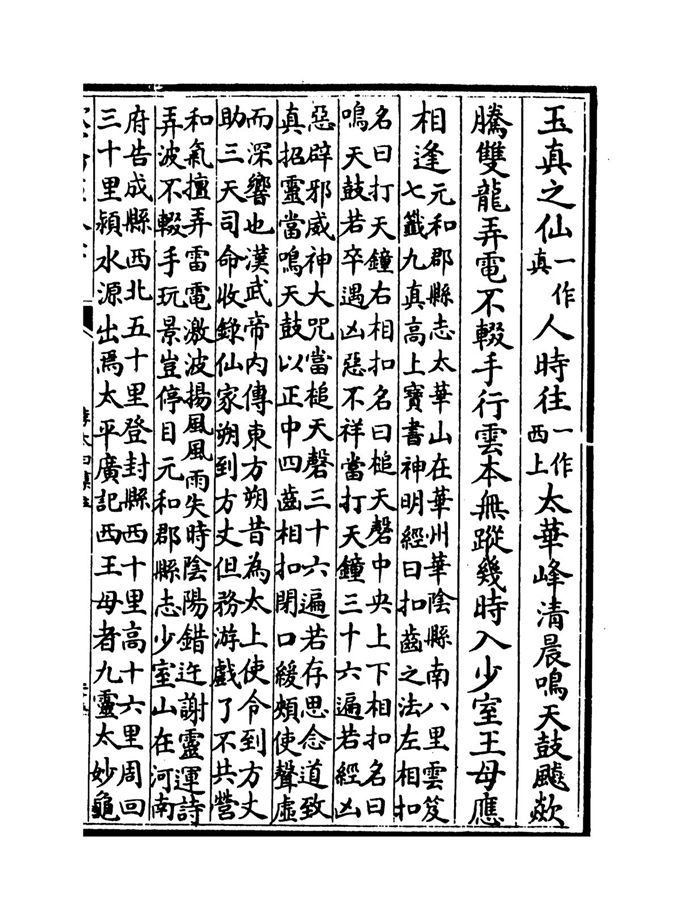 玉真之仙一作真人時往一作西上太華峰清晨鳴天鼓飈欻
騰雙龍弄電不輟手行雲本無蹤幾時入少室王母應
相逢元和郡縣志太華山在華州華陰縣南八里雲笈
七籤九真高上寶書神明經曰扣齒之法左相扣
名曰打天鐘右相扣名曰槌天磬中央上下相扣名曰
鳴天鼓若卒遇凶惡不祥當打天鐘三十六遍若經凶
惡辟邪威神大咒當槌天磬三十六遍若存思念道致
真招靈當鳴天鼓以正中四齒相扣閉口緩頰使聲虛
而深響也漢武帝内傳東方朔昔為太上使令到方丈
助三天司命收錄仙家朔到方丈但務游戲了不共營
和氣擅弄雷電激波揚風風雨失時陰陽錯迕謝靈運詩
弄波不輟手玩景豈停目元和郡縣志少室山在河南
府告成縣西北五十里登封縣西十里高十六里周回
三十里潁水源出焉太平廣記西王母者九靈太妙龜